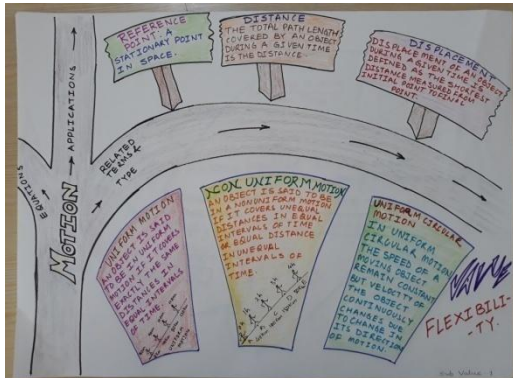 REFERENCE
POINT: A
STATIONARY POINT
IN SPACE.
DISTANCE
THE TOTAL PATH LENGTH
COVERED BY AN OBJECT
DURING A GIVEN TIME
IS THE DISTANCE.
DISPLACEMENT
DISPLACEMENT OF AN OBJECT
DURING A GIVEN TIME IS
DEFINED AS THE SHORTEST
DISTANCE MEASURED FROM
INITIAL POINT TO FINAL
POINT.
APPLICATIONS
EQUATIONS
MOTION
RELATED
TERMS &
TYPE
UNIFORM MOTION
AN OBJECT IS SAID
TO BE IN UNIFORM
MOTION IF IT COVERS
EXACTLY THE SAME
DISTANCES IN
EQUAL INTERVALS
OF TIME.
NON UNIFORM MOTION
AN OBJECT IS SAID TO BE
IN A NONUNIFORM MOTION
IF IT COVERS UNEQUAL
DISTANCES IN EQUAL
INTERVALS OF TIME
OR EQUAL DISTANCE
IN UNEQUAL
INTERVALS OF
TIME.
UNIFORM CIRCULAR
MOTION
IN UNIFORM
CIRCULAR MOTION
THE SPEED OF A
MOVING OBJECT
REMAIN CONSTANT
BUT VELOCITY OF
THE OBJECT
CONTINUOUSLY
CHANGES DUE
TO CHANGE IN
ITS DIRECTION
OF MOTION.
VALUE
FLEXIBILI-
-TY.
Sub Value - 1